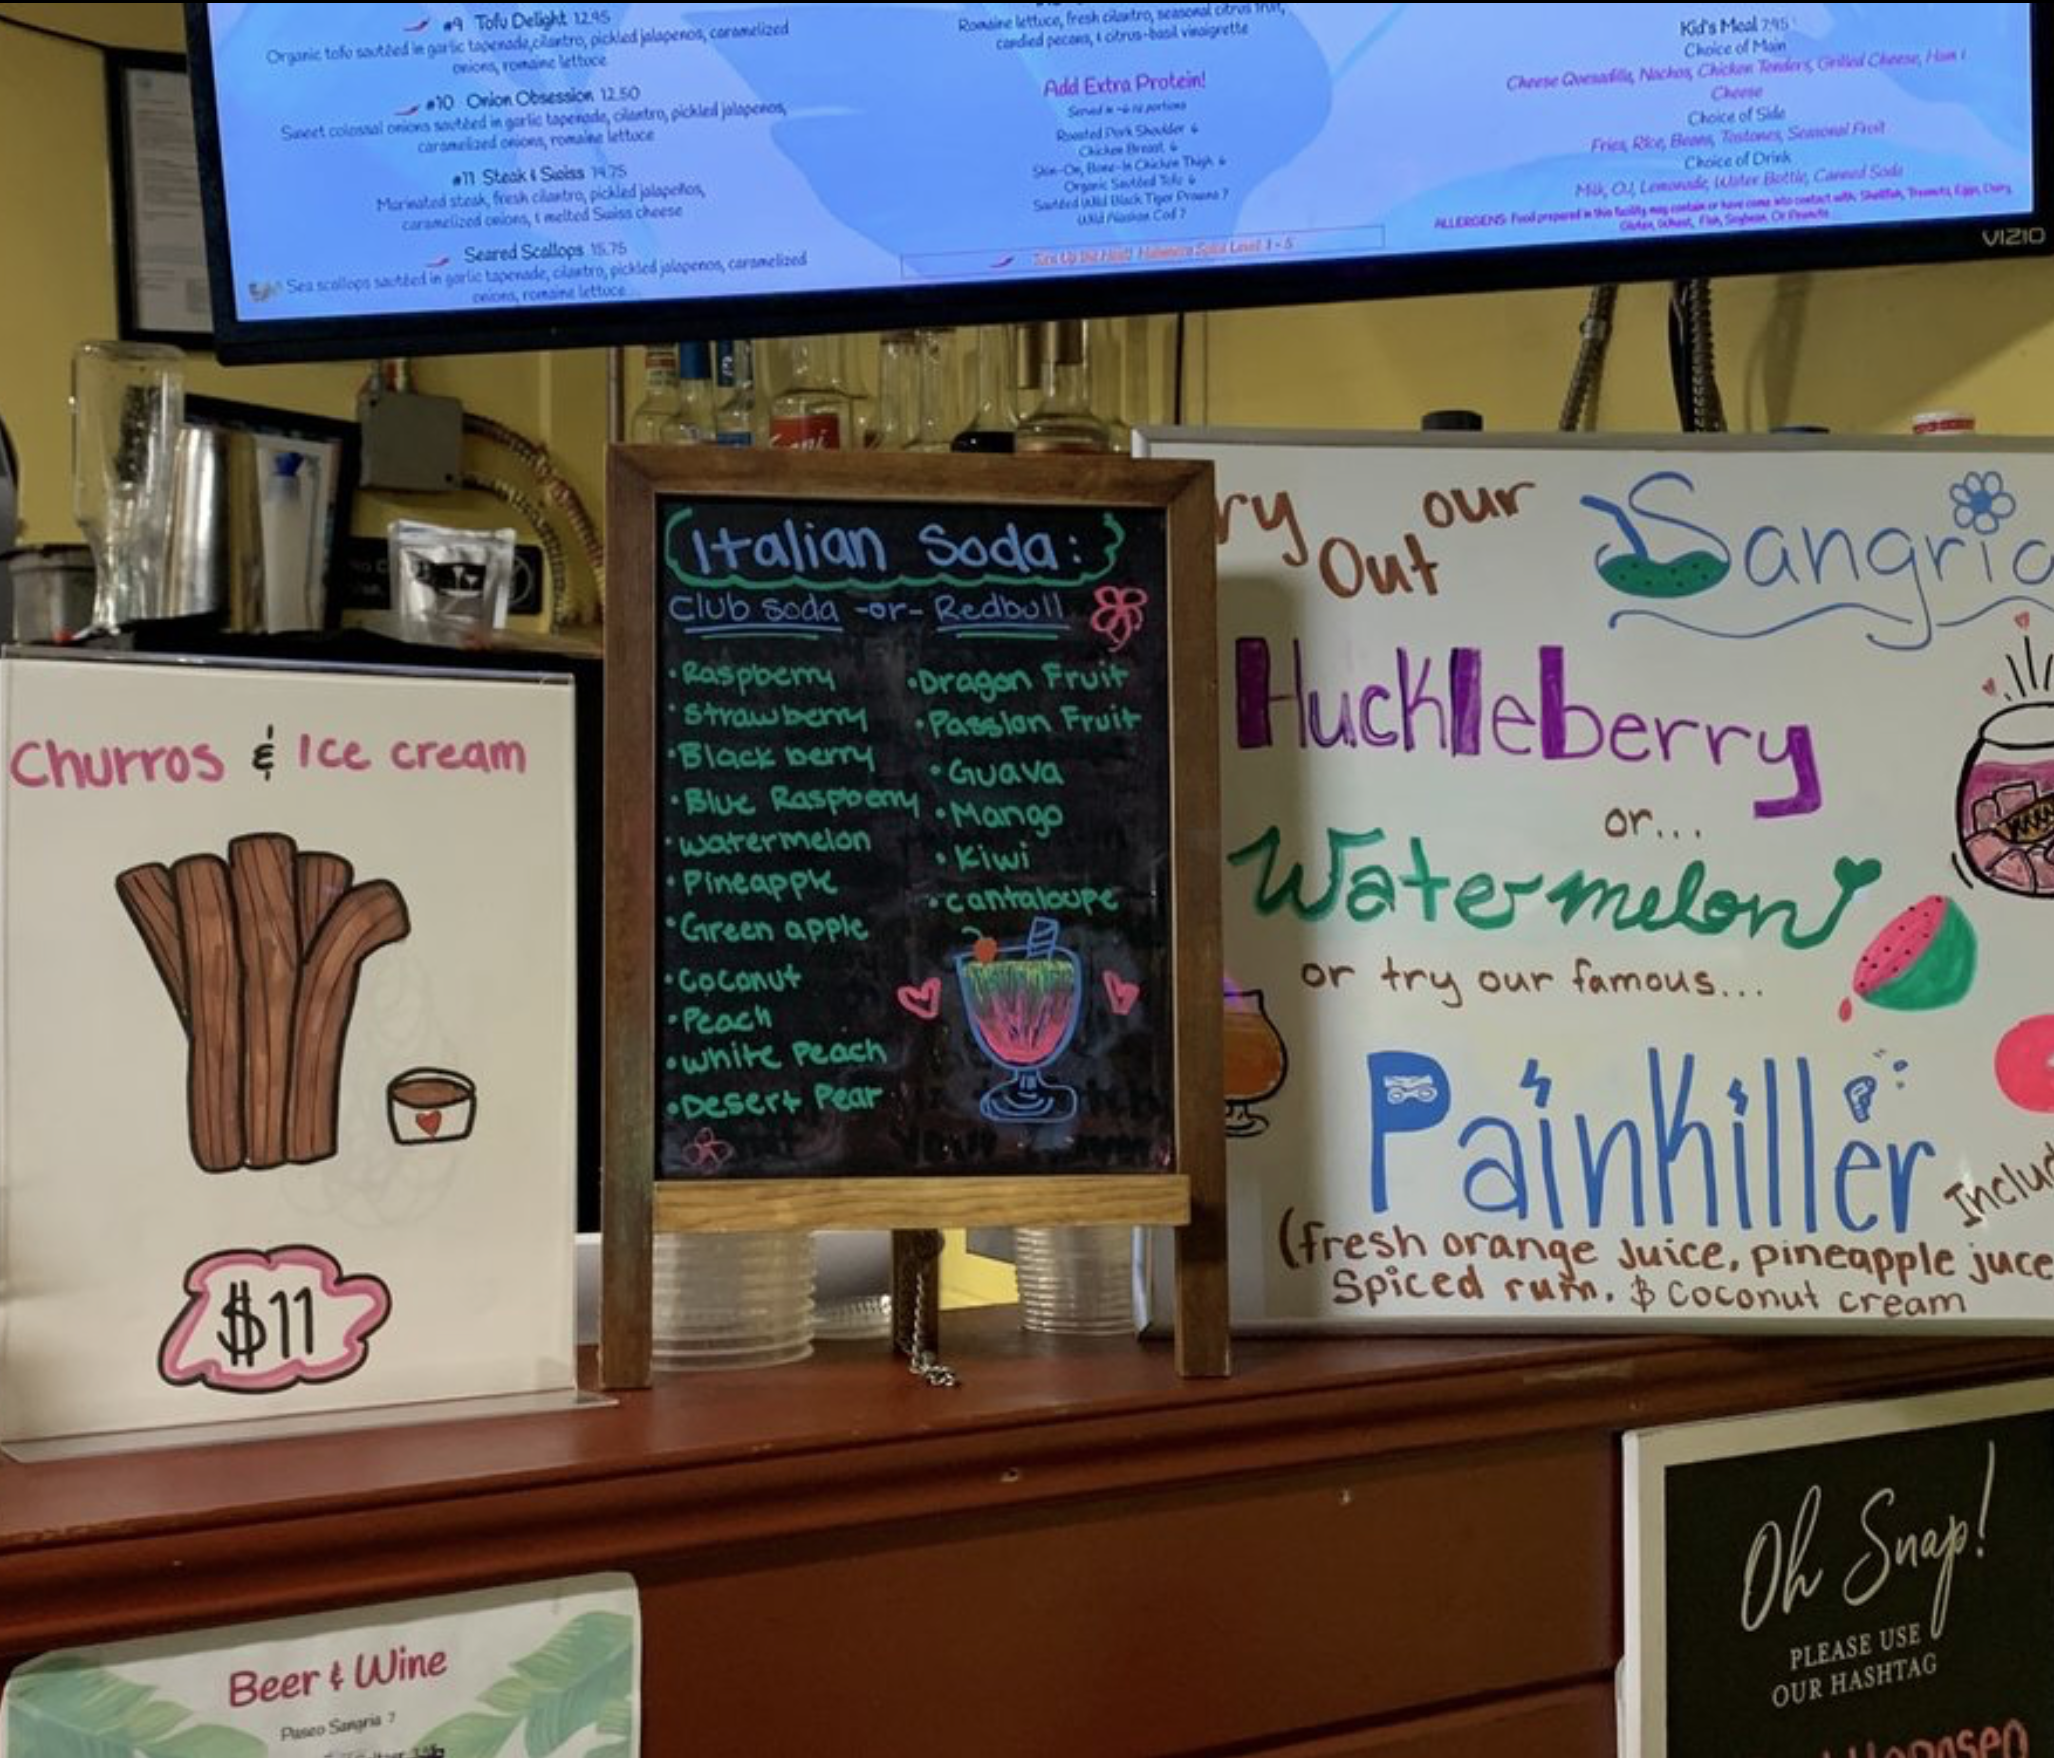 #9 Tofu Delight 12.95
Organic tofu sautéed in garlic tapenade, cilantro, pickled jalapenos, caramelized
onions, romaine lettuce
#10 Onion Obsession 12.50
Sweet colossal onions sautéed in garlic tapenade, cilantro, pickled jalapenos,
caramelized onions, romaine lettuce
#11 Steak & Swiss 14.75
Marinated steak, fresh cilantro, pickled jalapeños,
caramelized onions, & melted Swiss cheese
Seared Scallops 15.75
Sea scallops sautéed in garlic tapenade, cilantro, pickled jalapenos, caramelized
onions, romaine lettuce
Romaine lettuce, fresh cilantro, seasonal citrus fruit,
candied pecans, & citrus-basil vinaigrette
Add Extra Protein!
Served in ~6 oz portions
Roasted Pork Shoulder 6
Chicken Breast 6
Skin-On, Bone-In Chicken Thigh 6
Organic Sautéed Tofu 6
Sautéed Wild Black Tiger Prawns 7
Wild Alaskan Cod 7
Turn Up the Heat! Habanero Salsa Level 1 - 5
Kid's Meal 7.95
Choice of Main
Cheese Quesadilla, Nachos, Chicken Tenders, Grilled Cheese, Ham &
Cheese
Choice of Side
Fries, Rice, Beans, Tostones, Seasonal Fruit
Choice of Drink
Milk, OJ, Lemonade, Water Bottle, Canned Soda
ALLERGENS: Food prepared in this facility may contain or have come into contact with: Shellfish, Treenuts, Eggs, Dairy,
Gluten, Wheat, Fish, Soybean, Or Peanuts
VIZIO
Churros & Ice cream
$11
Italian Soda:
Club soda -or- Redbull
• Raspberry
• Strawberry
• Black berry
• Blue Raspberry
• Watermelon
• Pineapple
• Green apple
• Coconut
• Peach
• White Peach
• Desert Pear
• Dragon Fruit
• Passion Fruit
• Guava
• Mango
• Kiwi
• Cantaloupe
ry Out our Sangria
Huckleberry
or...
Watermelon
or try our famous...
Painkiller
Includ
(fresh orange juice, pineapple juce
Spiced rum. $ coconut cream
Beer & Wine
Paseo Sangria 7
Oh Snap!
PLEASE USE
OUR HASHTAG